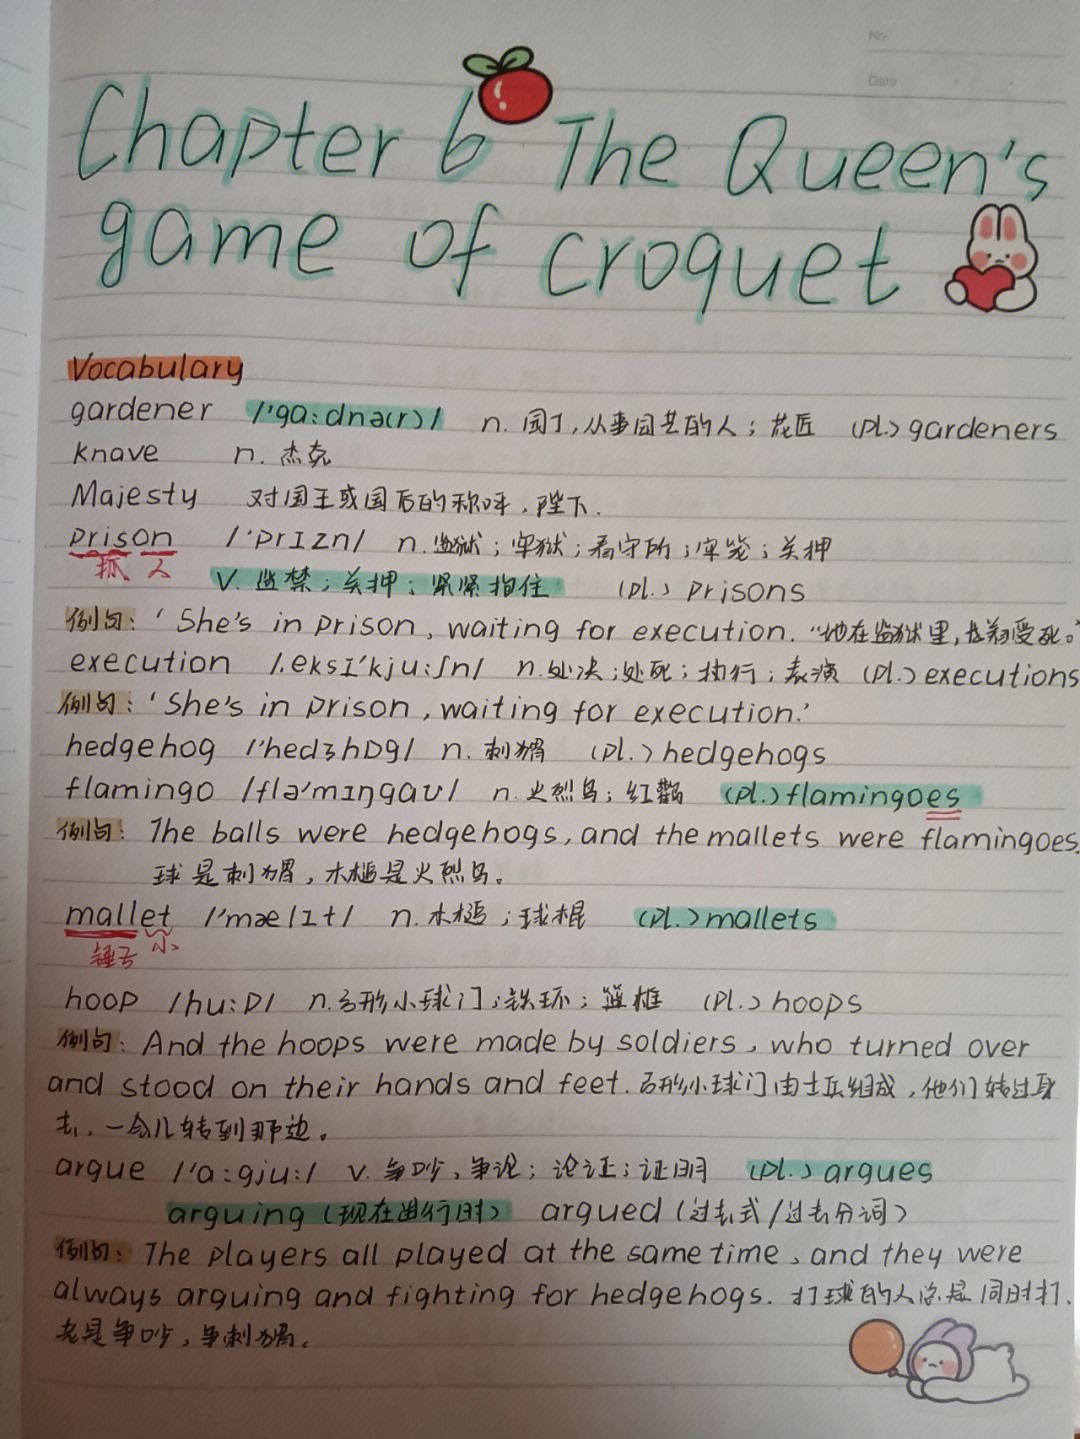 No.
Date
Chapter 6 The Queen's
game of croquet
Vocabulary
gardener /'ga:dnə(r)/ n. 园丁,从事园艺的人;花匠 (pl.) gardeners
knave n. 杰克
Majesty 对国王或国后的称呼,陛下.
prison /'prɪzn/ n. 监狱;牢狱;看守所;牢笼;关押
抓 人
v. 监禁;关押;紧紧抱住 (pl.) prisons
例句: 'She's in prison, waiting for execution. "她在监狱里,等着受死。"
execution /.eksɪ'kju:ʃn/ n. 处决;处死;执行;表演 (pl.) executions
例句: 'She's in prison, waiting for execution.'
hedgehog /'hedʒhɒg/ n. 刺猬 (pl.) hedgehogs
flamingo /flə'mɪŋgəʊ/ n. 火烈鸟;红鹳 (pl.) flamingoes
例句: The balls were hedgehogs, and the mallets were flamingoes.
球是刺猬,木槌是火烈鸟。
mallet /'mælɪt/ n. 木槌;球棍 (pl.) mallets
锤子 小
hoop /hu:p/ n. 弓形小球门;铁环;篮框 (pl.) hoops
例句: And the hoops were made by soldiers, who turned over
and stood on their hands and feet. 弓形小球门由士兵组成,他们转过身
去,一会儿转到那边。
argue /'a:gju:/ v. 争吵,争论;论证;证明 (pl.) argues
arguing (现在进行时) argued (过去式/过去分词)
例句: The players all played at the same time, and they were
always arguing and fighting for hedgehogs. 打球的人总是同时打,
老是争吵,争刺猬。